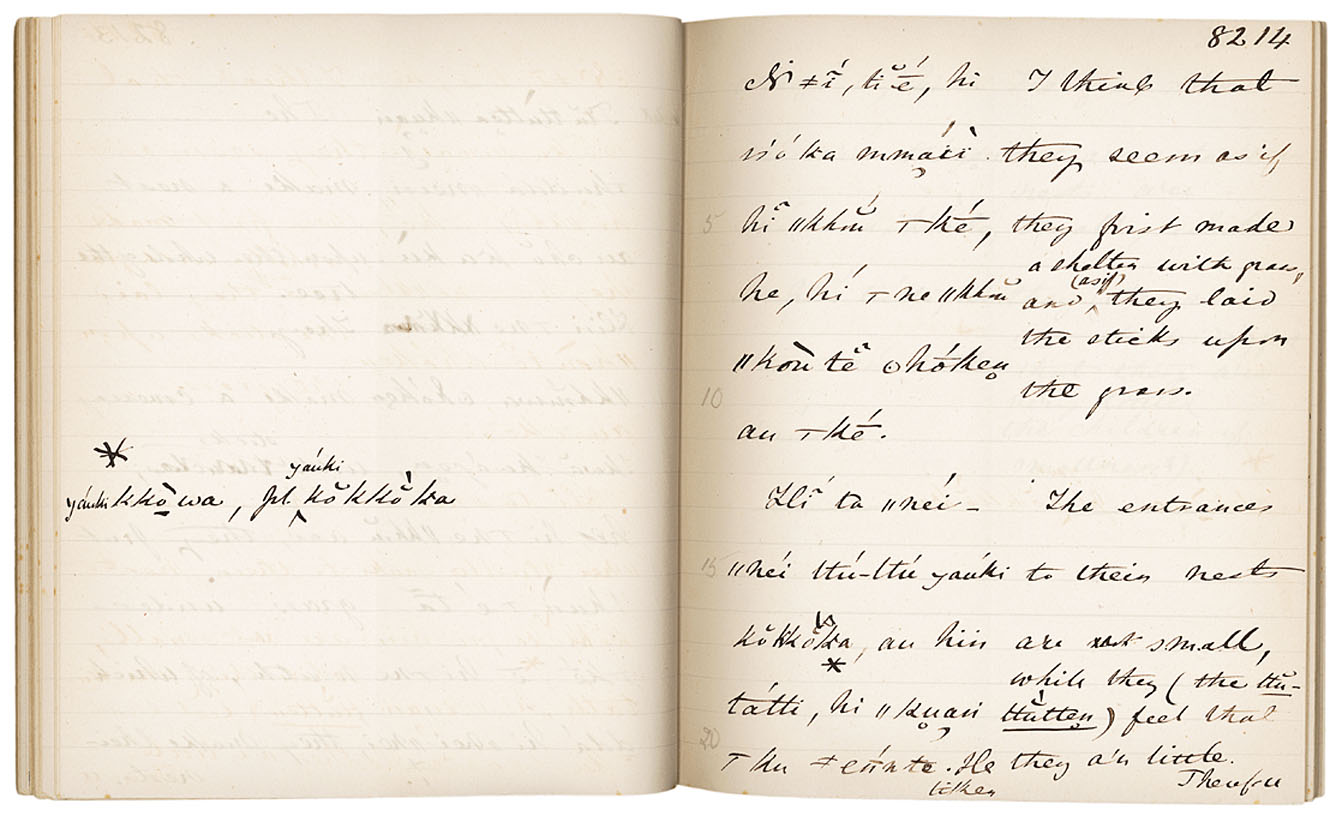 *
yáuki
yáuki kkŏ̀wa, pl. kŏ́kkŏ̀ka
8214
N ǂĩ, ti é, hi I think that
ssó ka mmáìì they seem as if
5 hĩ ǁkhu ⊤ké, they first made
a shelter with grass,
(as if)
he, hí ⊤ne ǁkhu and, they laid
the sticks upon
ǁkòù tẽ ⊙hókeṇ
10 the grass.
au ⊤ké.
ta ǁnéi- The entrances
15 ǁnéi ttú-ttú yaúki to their nests
kŏ́kkŏ̀ka, au hiń are not small,
*
while they (the ttù-
tátti, hi ǁkuaṇ ttùtteṇ) feel that
20
⊤ku ǂeńńte. He they are little.
tiken Therefore